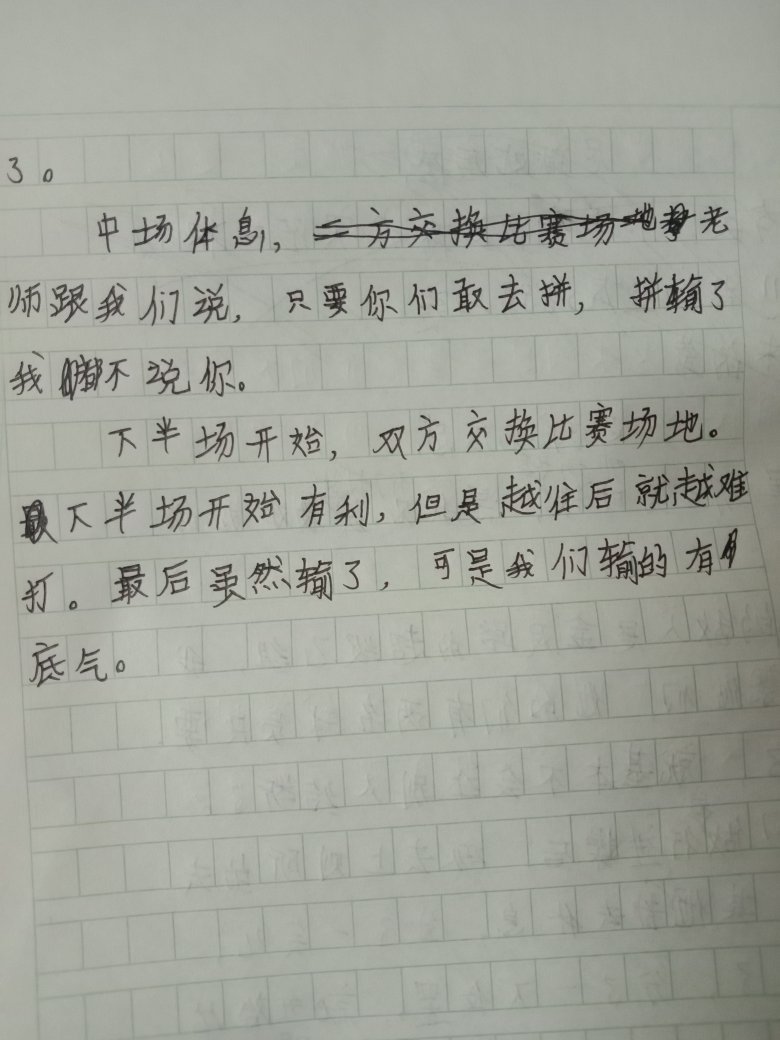 3。
中场体息，老
师跟我们说，只要你们敢去拼，拼输了
我都不说你。
下半场开始，双方交换比赛场地。
下半场开始有利，但是越往后就越难
打。最后虽然输了，可是我们输的有
底气。